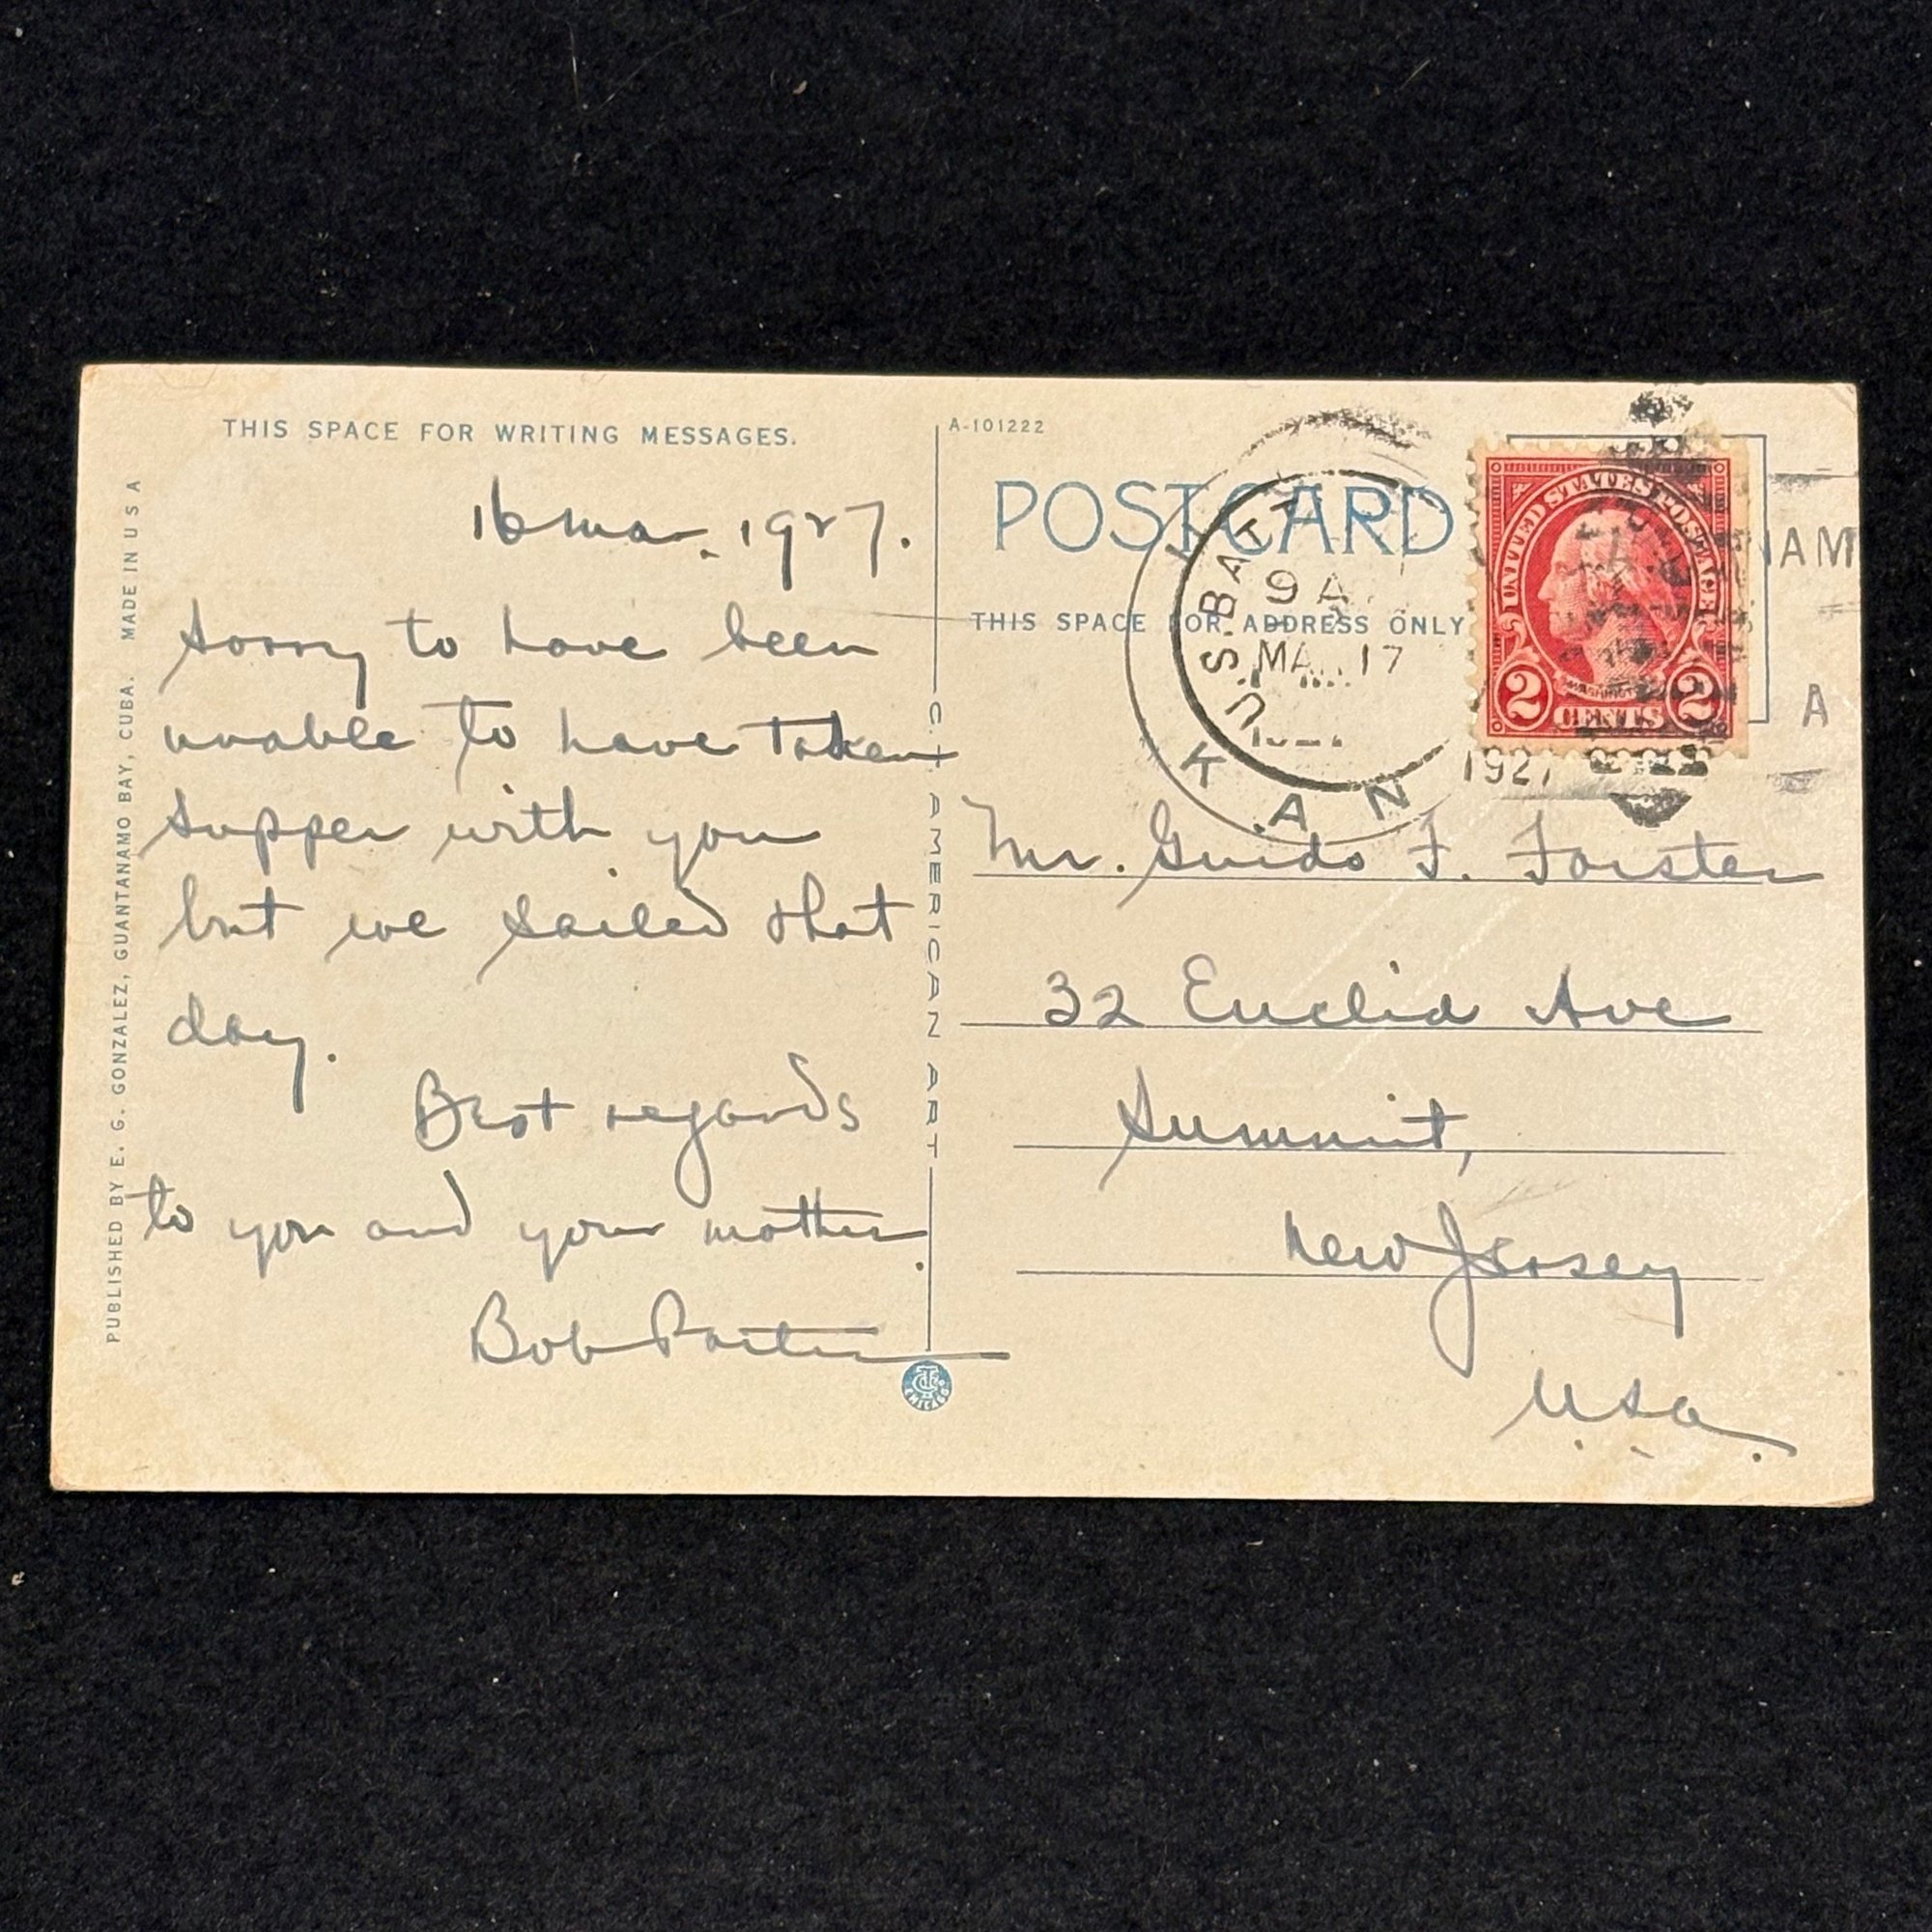 THIS SPACE FOR WRITING MESSAGES.
16 Mar. 1927.
Sorry to have been
unable to have taken
supper with you
but we sailed that
day.
Best regards
to you and your mother.
Bob Porter
PUBLISHED BY E. G. GONZALEZ, GUANTANAMO BAY, CUBA. MADE IN U S A
C.T. AMERICAN ART
A-101222
POSTCARD
THIS SPACE FOR ADDRESS ONLY
U.S. BATT
9 A
MAR 17
1927
K A N
AM
A
UNITED STATES POSTAGE
WASHINGTON
2 CENTS 2
Mr. Guido F. Forster
32 Euclid Ave
Summit,
New Jersey
U.S.A.